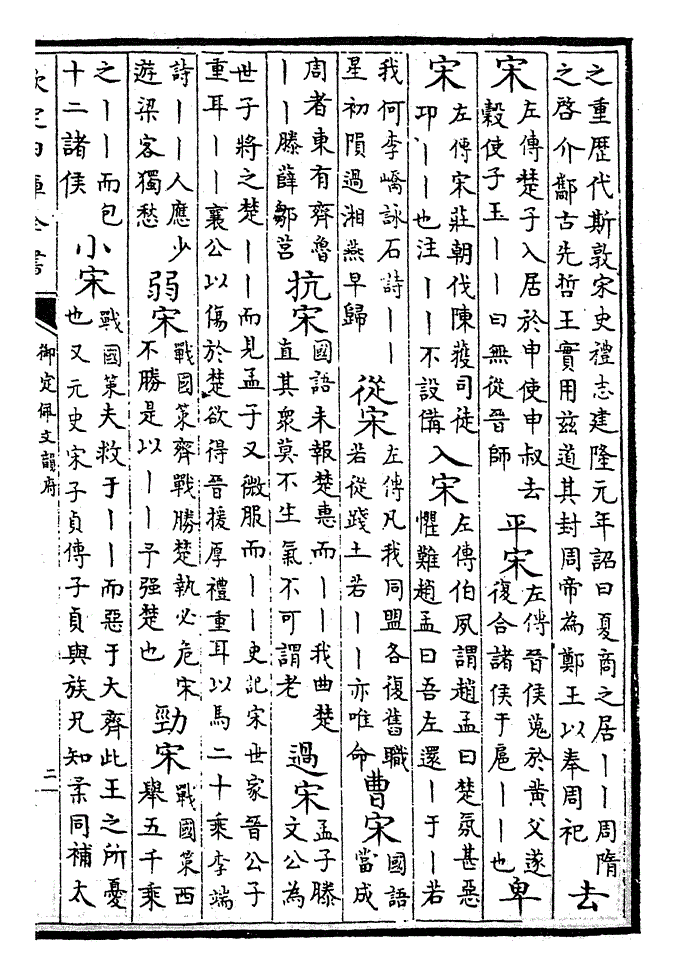 之重歴代斯敦宋史禮志建隆元年詔曰夏商之居丨丨周隋
之啓介酅古先哲王實用兹道其封周帝為鄭王以奉周祀
去
宋
左傳楚子入居於申使申叔去
穀使子玉丨丨曰無從晉師
平宋
左傳晉侯蒐於黄父遂
復合諸侯于扈丨丨也
卑
宋
左傳宋莊朝伐陳獲司徒
卬丨丨也注丨丨不設備
入宋
左傳伯夙謂趙孟曰楚氛甚惡
懼難趙孟曰吾左還丨于丨若
我何李嶠詠石詩丨丨
星初隕過湘燕早歸
從宋
左傳凡我同盟各復舊職
若從踐土若丨丨亦唯命
曹宋
國語
當成
周者東有齊魯
丨丨滕薛鄒莒
抗宋
國語未報楚惠而丨丨我曲楚
直其衆莫不生氣不可謂老
過宋
孟子滕
文公為
世子將之楚丨丨而見孟子又微服而丨丨史記宋世家晉公子
重耳丨丨襄公以傷於楚欲得晉援厚禮重耳以馬二十乘李端
詩丨丨人應少
遊梁客獨愁
弱宋
戰國策齊戰勝楚執必危宋
不勝是以丨丨予强楚也
勁宋
戰國策西
舉五千乘
之丨丨而包
十二諸侯
小宋
戰國策夫救于丨丨而惡于大齊此王之所憂
也又元史宋子貞傳子貞與族兄知柔同補太
欽定四庫全書
御定佩文韻府
二